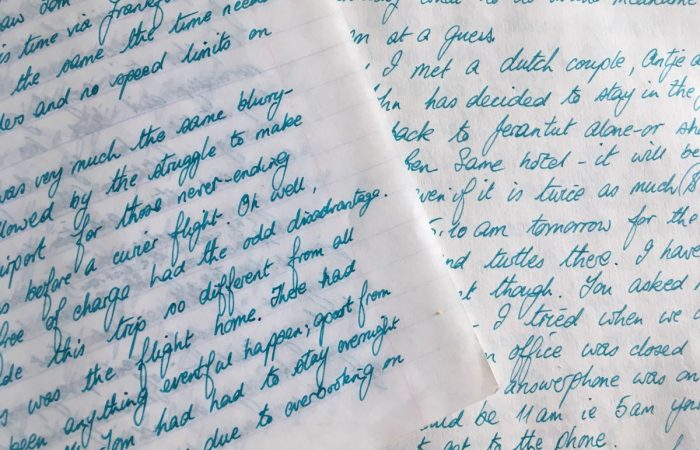 is time via Frankfurt
the same the time need
ders and no speed limits on
was very much the same blurry-
llowed by the struggle to make
airport - for those never-ending
s before a curier flight. Oh well,
free of charge had the odd disadvantage.
de this trip so different from all
s was the flight home. There had
been anything eventful happen; apart from
Tom had had to stay overnight
due to overbooking on
m at a guess.
I met a dutch couple, Antje a
hn has decided to stay in the
back to Jerantut alone - or sh
hen. Same hotel - it will be
even if it is twice as much
5.10 am tomorrow for the
nd turtles there. I have
t though. You asked
- I tried when we
n office was closed
answerphone was on
uld be 11am ie 5am you
t get to the phone.